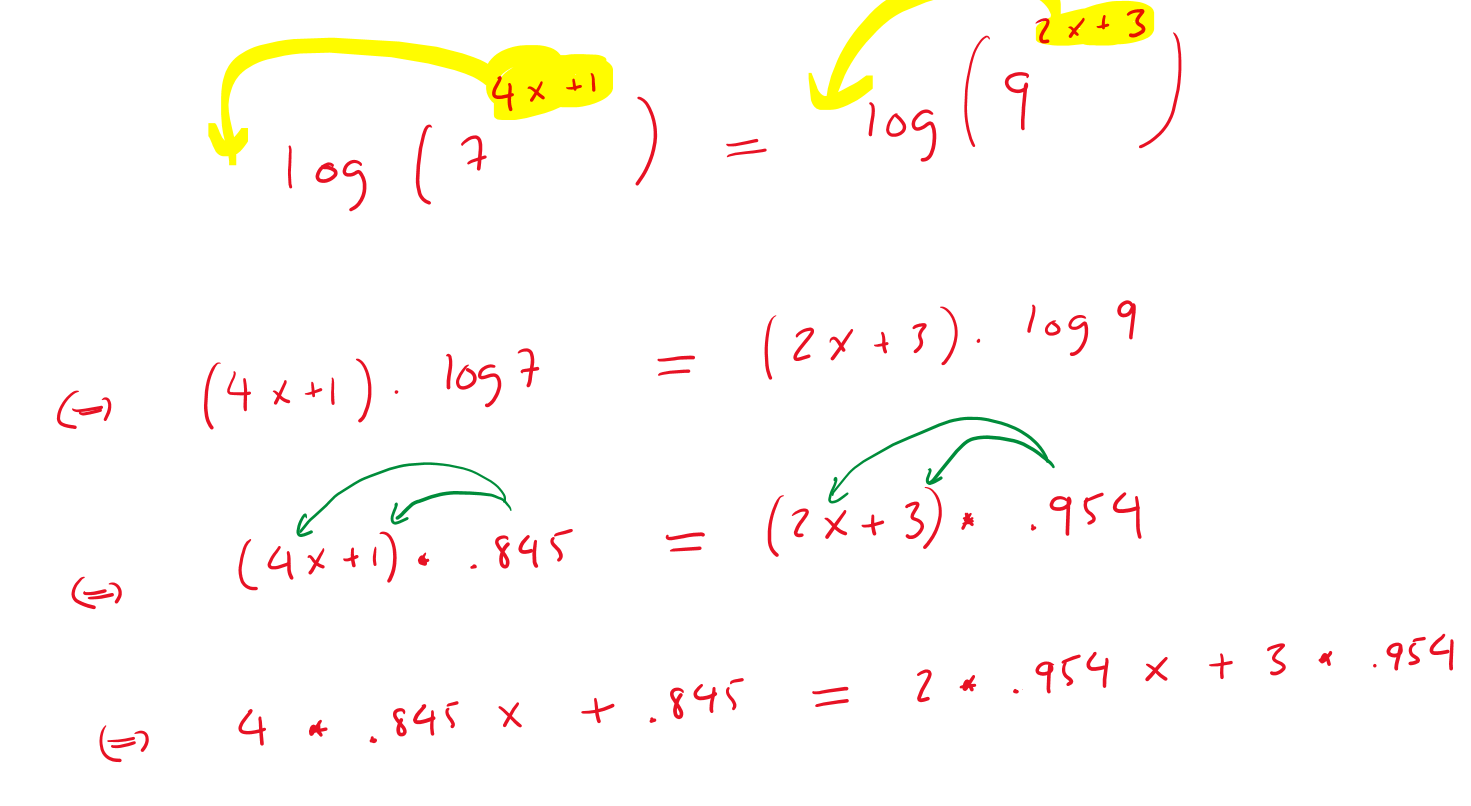 log ( 7^{4x+1} ) = log ( 9^{2x+3} )
(=) (4x+1) . log 7 = (2x+3) . log 9
(=) (4x+1) * .845 = (2x+3) * .954
(=) 4 * .845 x + .845 = 2 * .954 x + 3 * .954